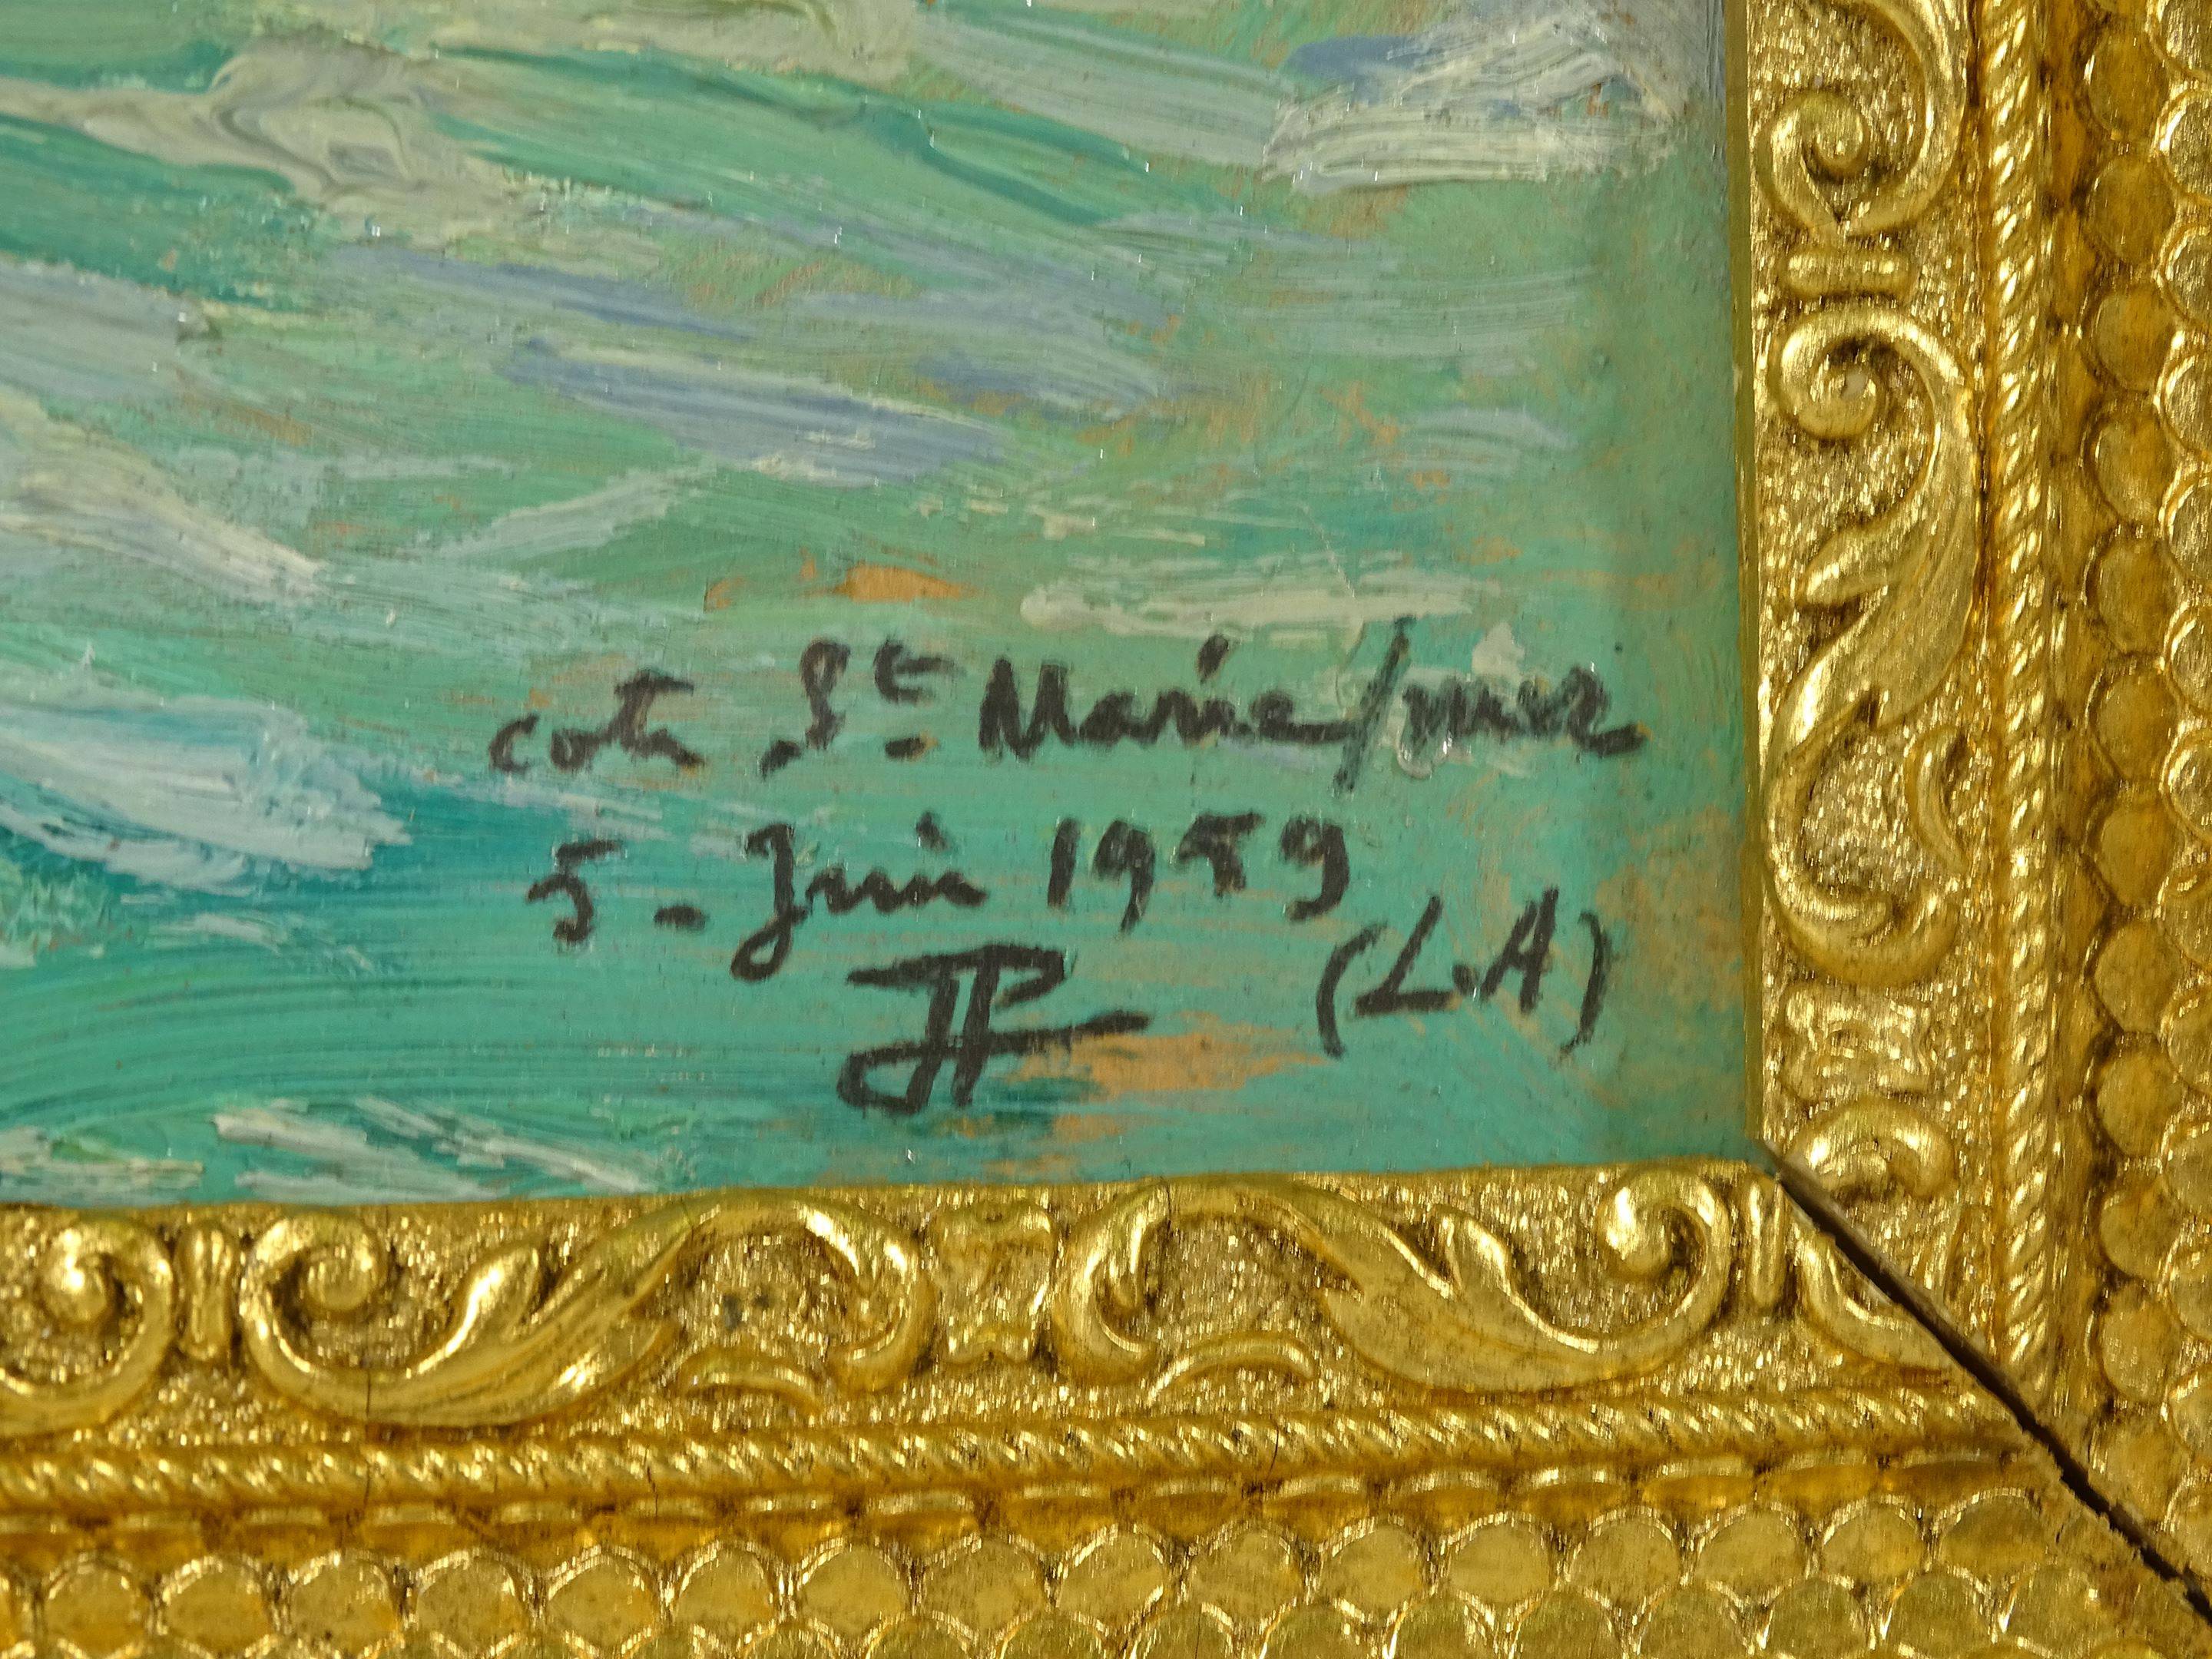 cote Ste Marie/mer
5 - Juin 1959
(L.A)
JP